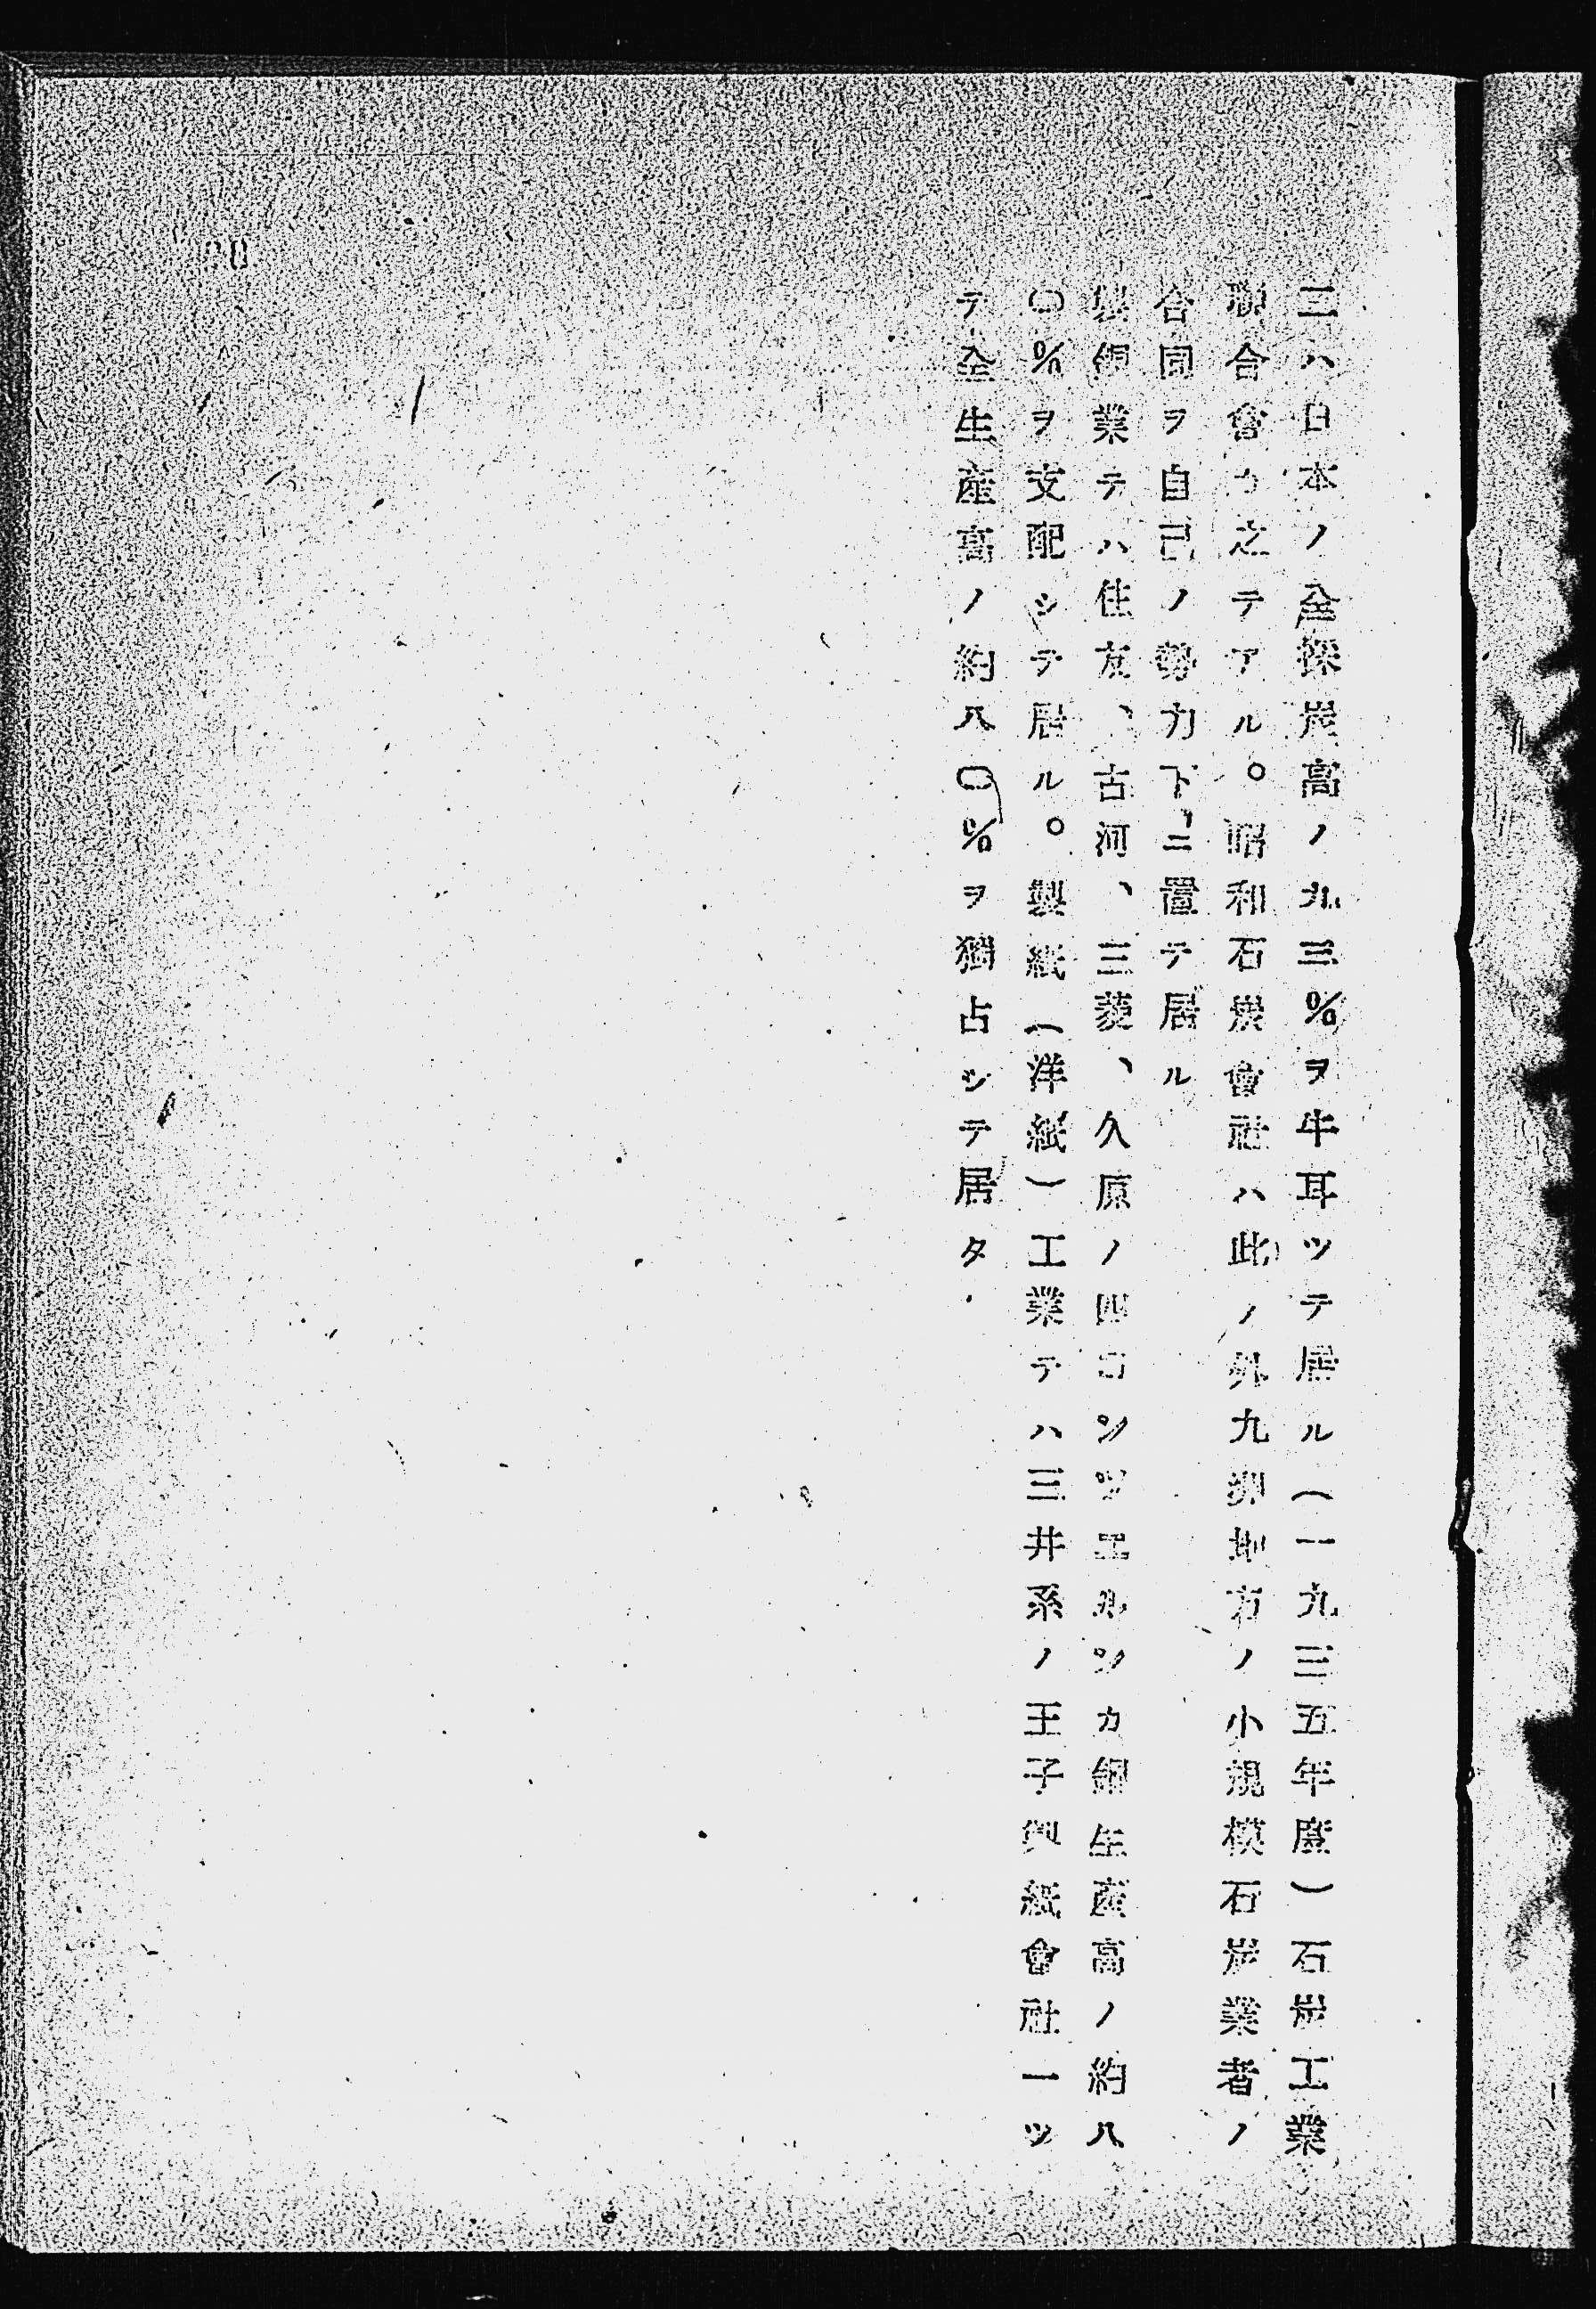 ニハ日本ノ全採炭高ノ九三%ヲ牛耳ツテ居ル(一九三五年度)石炭工業
聯合會カ之テアル。昭和石炭會社ハ此ノ外九州地方ノ小規模石炭業者ノ
合同ヲ自己ノ勢力下ニ置テ居ル
製銅業テハ住友、古河、三菱、久原ノ四コンツエルンカ銅生産高ノ約八
〇%ヲ支配シテ居ル。製紙(洋紙)工業テハ三井系ノ王子製紙會社一ツ
テ全生産高ノ約八〇%ヲ獨占シテ居タ.